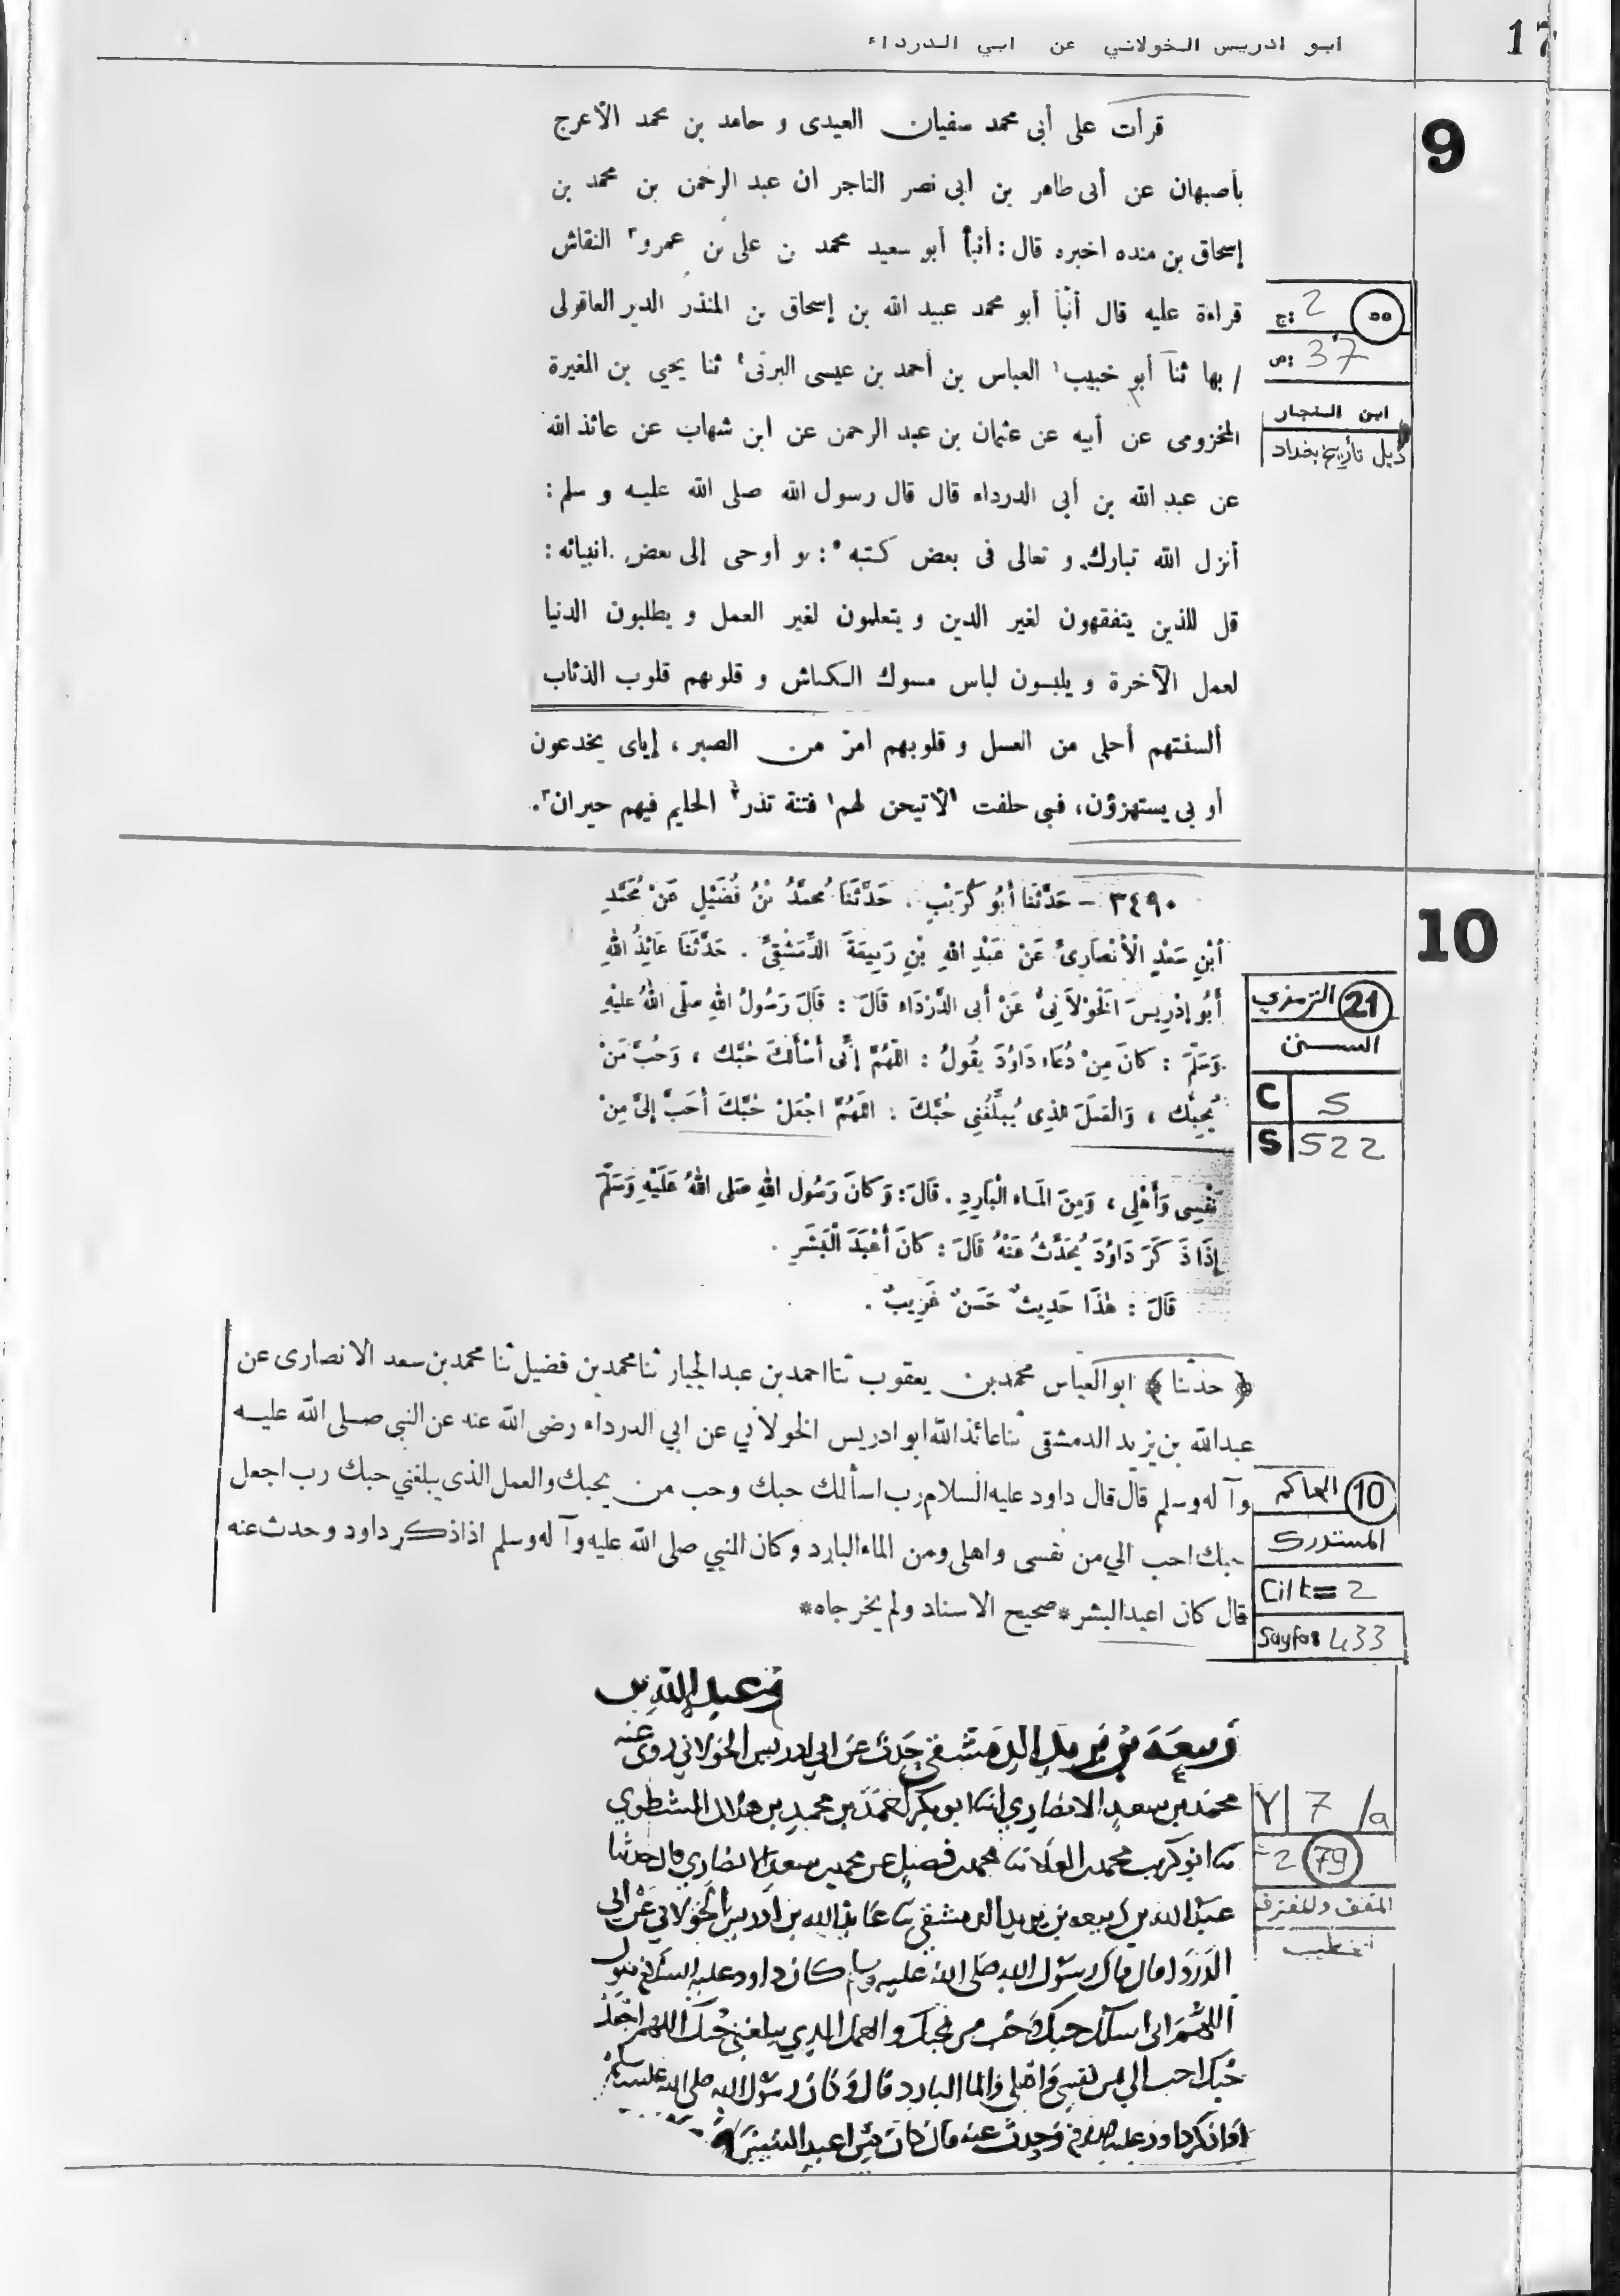 أبو ادريس الخولاني عن ابي الدرداء
17
9
قرأت على أبى محمد سفيان العبدى و حامد بن محمد الأعرج
بأصبهان عن أبى طاهر بن أبى نصر التاجر ان عبد الرحمن بن محمد بن
إسحاق بن منده اخبره قال : أنبأ أبو سعيد محمد بن على بن عمرو٢ النقاش
قراءة عليه قال أنبأ أبو محمد عبيد الله بن إسحاق بن المنذر الدير العاقولى
/ بها ثنا أبو خبيب العباس بن أحمد بن عيسى البرتى٤ ثنا يحيي بن المغيرة
المخزومى عن أبيه عن عثمان بن عبد الرحمن عن ابن شهاب عن عائذ الله
عن عبد الله بن أبى الدرداء قال قال رسول الله صلى الله عليه و سلم :
أنزل الله تبارك و تعالى فى بعض كتبه٥ : و أوحى إلى بعض انبيائه :
قل للذين يتفقهون لغير الدين و يتعلمون لغير العمل و يطلبون الدنيا
لعمل الآخرة و يلبسون لباس مسوك الكباش و قلوبهم قلوب الذئاب
ألسنتهم أحلى من العسل و قلوبهم امرّ من الصبر ، إياى يخدعون
أو بى يستهزؤن، فبى حلفت لأتيحن لهم فتنة تذر الحليم فيهم حيران٣.
ج: 2
٥٥
ص: 37
ابن النجار
ذيل تاريخ بغداد
10
٣٤٩٠ – حَدَّثَنَا أَبُو كُرَيْبٍ . حَدَّثَنَا مُحمَّدُ بْنُ فُضَيْلٍ عَنْ مُحَمَّدِ
ابْنِ سَعْدٍ الْأَنْصَارِىِّ عَنْ عَبْدِ اللهِ بْنِ رَبِيعَةَ الدِّمَشْقِىِّ . حَدَّثَنَا عَائِذُ اللهِ
أَبُو إِدْرِيسَ الْخَوْلاَنِىُّ عَنْ أَبى الدَّرْدَاء قَالَ : قَالَ رَسُولُ اللهِ صلّى اللهُ عليْهِ
وَسَلَّمَ : كانَ مِنْ دُعَاء دَاوُدَ يقُولُ : اللَّهُمَّ إنِّى أَسْأَلُكَ حُبَّك ، وَحُبَّ مَنْ
يُحِبُّك ، وَالْعَمَلَ الذِى يُبَلِّغُنِى حُبَّكَ : اللَّهُمَّ اجْعَلْ حُبَّكَ أَحَبَّ إِلىَّ مِنْ
نَفْسِى وَأَهْلِى ، وَمِنَ المَاء الْبَارِدِ . قَالَ : وَكَانَ رَسُولُ اللهِ صَلى اللهُ عَلَيْهِ وَسَلَّمَ
إذَا ذَكَرَ دَاوُدَ يُحَدِّثُ عَنْهُ قَالَ : كانَ أَعْبَدَ الْبَشَرِ .
قَالَ : هٰذَا حَدِيثٌ حَسَنٌ غَرِيبٌ .
الترمذي 21
السنن
C 5
S 522
﴿ حدثنا ﴾ ابو العباس محمد بن يعقوب ثنا احمد بن عبد الجبار ثنا محمد بن فضيل ثنا محمد بن سعد الانصارى عن
عبد الله بن يزيد الدمشقى ثنا عائذ الله ابو ادريس الخولاني عن ابي الدرداء رضى الله عنه عن النبي صلى الله عليه
وآله وسلم قال قال داود عليه السلام رب اسألك حبك وحب من يحبك والعمل الذى يبلغني حبك رب اجعل
حبك احب الي من نفسى واهلى ومن الماء البارد وكان النبي صلى الله عليه وآله وسلم اذا ذكر داود وحدث عنه
قال كان اعبد البشر * صحيح الاسناد ولم يخرجاه *
الحاكم 10
المستدرك
Cilt= 2
Sayfa: 433
وعبد الله بن
ربيعة بن يزيد الدمشقي حدث عن ابي ادريس الخولاني روى عنه
محمد بن سعد الانصاري انبا ابو بكر احمد بن محمد بن الشطوي
ثنا ابو كريب محمد بن العلا ثنا محمد بن فضيل عن محمد بن سعد الانصاري قال حدثنا
عبد الله بن ربيعه بن يزيد الدمشقي ثنا عايذ الله بن ادريس الخولاني عن ابى
الدردا قال قال رسول الله صلى الله عليه وسلم كان داود عليه السلم يقول
اللهم انى اسلك حبك وحب من يحبك والعمل الذي يبلغني حبك اللهم اجعل
حبك احب الي من نفسي واهلى والما البارد قال وكان رسول الله صلى الله عليه وسلم
اذا ذكر داود عليه وحدث عنه قال كان اعبد البشر
Y 7 /a
2 79
المتفق والمفترق
الخطيب